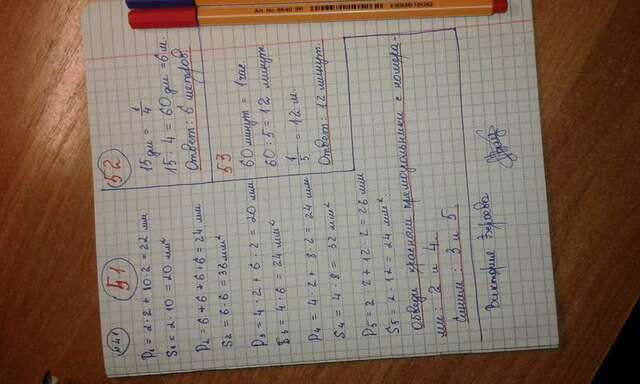 51
P₁ = 2·2 + 10·2 = 22 мм
S₁ = 2·10 = 20 мм²
P₂ = 6+6+6+6 = 24 мм
S₂ = 6·6 = 36 мм²
P₃ = 4·2 + 6·2 = 20 мм
S₃ = 4·6 = 24 мм²
P₄ = 4·2 + 8·2 = 24 мм
S₄ = 4·8 = 32 мм²
P₅ = 2·2 + 12·2 = 28 мм
S₅ = 2·12 = 24 мм²
Обведи красным прямоугольники с номера-
ми: 2 и 4.
Синим: 3 и 5.
Виктория
52
15 дм = 1/4
15·4 = 60 дм = 6 м.
Ответ: 6 метров
53
60 минут = 1 час
60:5 = 12 минут
1/5 = 12 м.
Ответ: 12 минут.